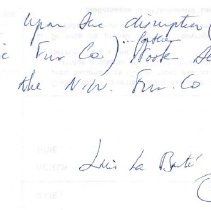 upon the disruption (
c Fur Co) ... father took se
the N.W. Fur. Co
Luis La Barté